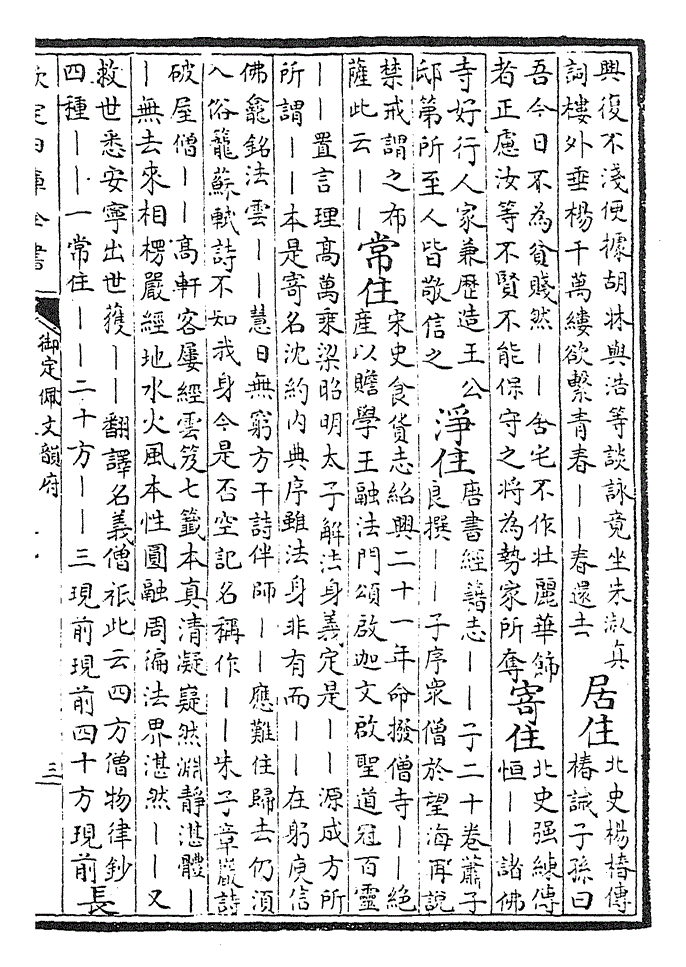 興復不淺便據胡牀與浩等談詠竟坐朱淑真
詞樓外垂楊千萬縷欲繫青春——春還去
居住
北史楊椿傳
椿誡子孫曰
吾今日不為貧賤然——舍宅不作壯麗華飾
者正慮汝等不賢不能保守之將為勢家所奪
寄住
北史强練傳
恒——諸佛
寺好行人家兼歷造王公
邸第所至人皆敬信之
淨住
唐書經籍志——子二十卷蕭子
良撰——子序衆僧於望海再說
禁戒謂之布
薩此云——
常住
宋史食貨志紹興二十一年命撥僧寺——絶
産以贍學王融法門頌啟迦文啟聖道冠百靈
——置言理高萬乘梁昭明太子解法身義定是——源成方所
所謂——本是寄名沈約内典序雖法身非有而——在躬庾信
佛龕銘法雲——慧日無窮方干詩伴師——應難住歸去仍須
入俗籠蘇軾詩不知我身今是否空記名稱作——朱子章巖詩
破屋僧——高軒客屢經雲笈七籤本真清凝嶷然淵靜湛體—
—無去來相楞嚴經地水火風本性圓融周徧法界湛然——又
救世悉安寧出世獲——翻譯名義僧祇此云四方僧物律鈔
四種——一常住——二十方——三現前現前四十方現前
長
欽定四庫全書
御定佩文韻府
三